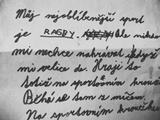 Můj nejoblíbenější sport
je RAGBY. Ale nikdo
mi nechce nahrávat když
mi velice de. Hraji to
totiž na sportovním kroužku
Běhá se tam z míčem.
Na sportovním kroužku